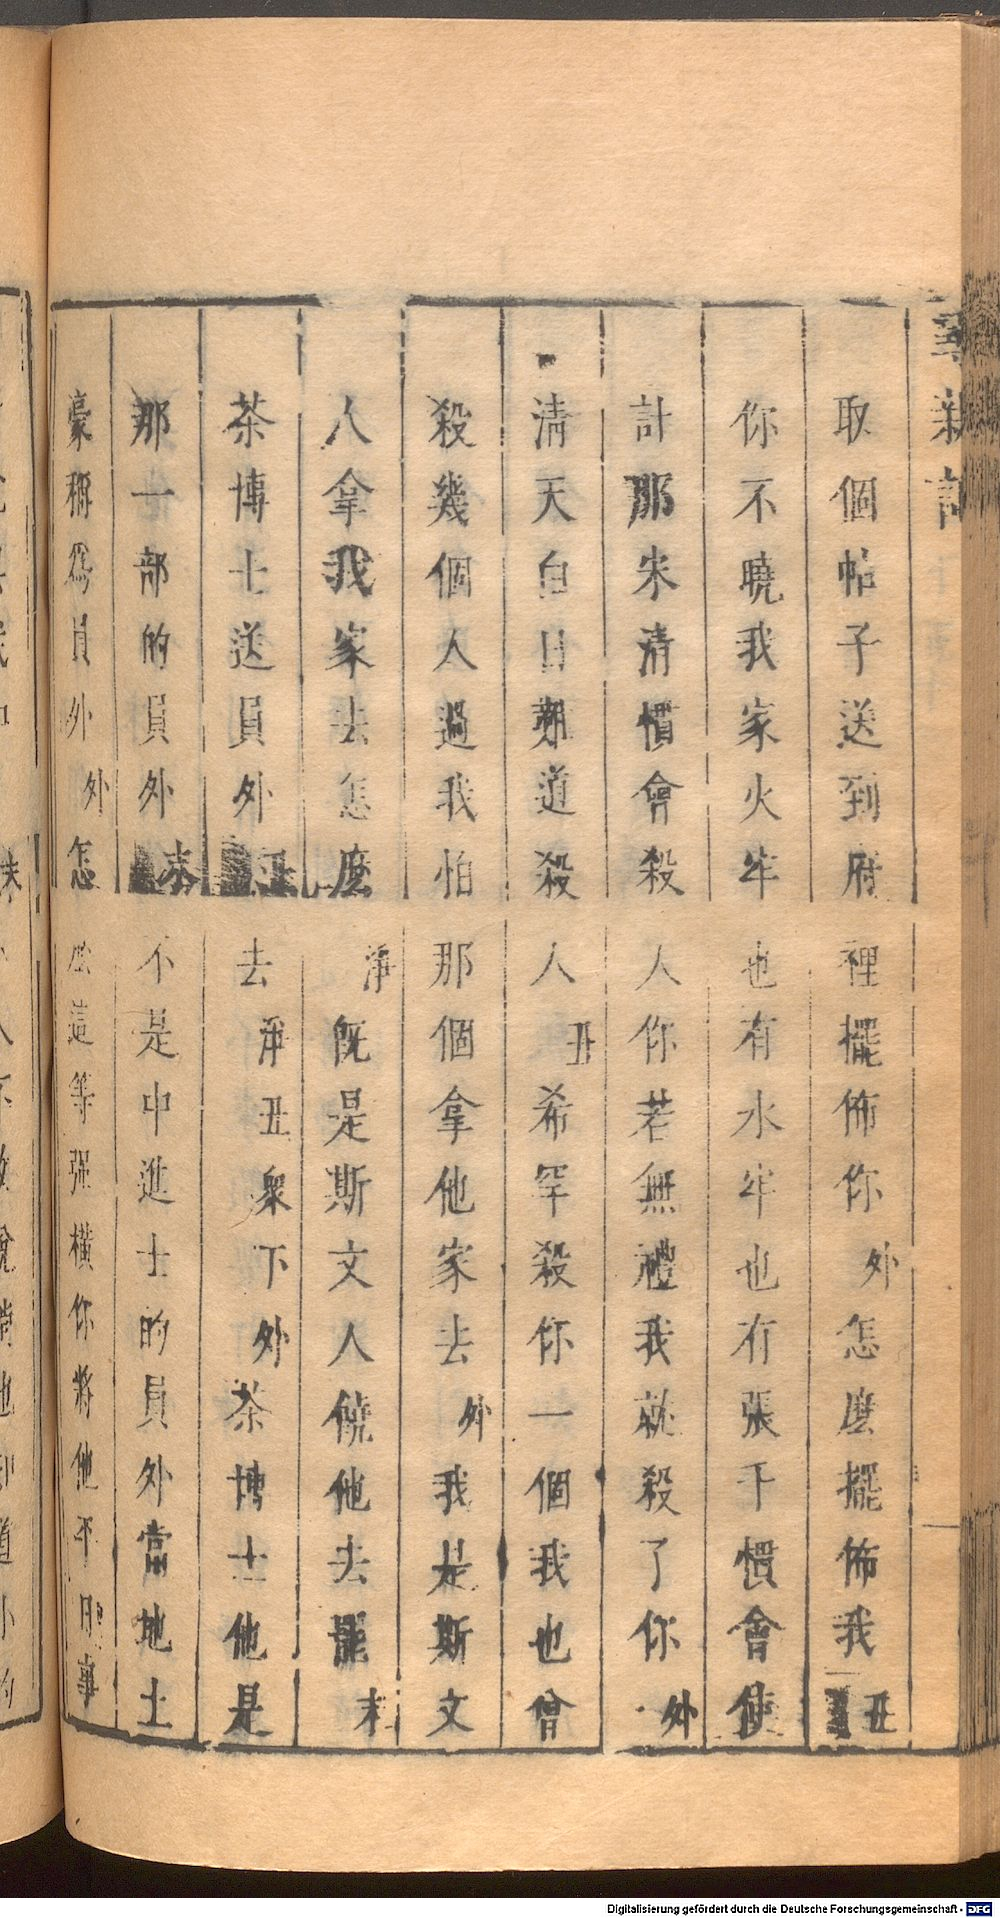 尋親記
取個帖子送到府裡擺佈你外怎麽擺佈我丑
你不曉我家火牢也有水牢也有張千慣會使
計那宋清慣會殺人你若無禮我就殺了你外
清天白日難道殺人丑希罕殺你一個我也曾
殺幾個人過我怕那個拿他家去外我是斯文
人拿我家去怎麽淨既是斯文人饒他去罷末
茶博士送員外去淨丑衆下外茶博士他是
那一部的員外末不是中進士的員外當地土
豪稱爲員外外怎麽這等强橫你將他平日事
Digitalisierung gefördert durch die Deutsche Forschungsgemeinschaft - DFG